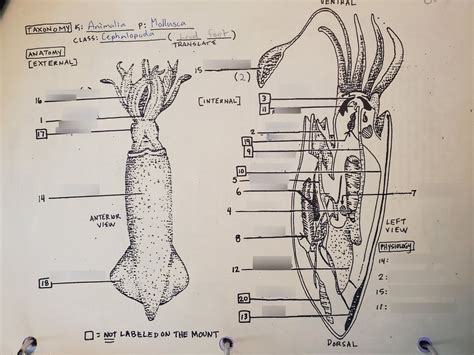 VENTRAL
TAXONOMY K: Animalia P: Mollusca
CLASS: Cephalopoda (head foot)
TRANSLATE
ANATOMY
[EXTERNAL]
15
(2)
[INTERNAL]
16
1
17
14
ANTERIOR
VIEW
18
3
11
2
19
9
10
5
6
4
7
8
12
20
13
LEFT
VIEW
PHYSIOLOGY
14:
2:
15:
11:
□ = NOT LABELED ON THE MOUNT
DORSAL